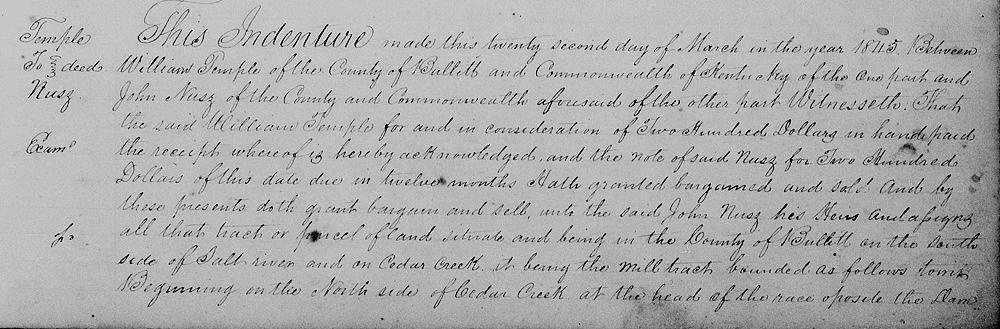 Temple
To deed
Nusz
Examd
This Indenture made this twenty second day of March in the year 1845 Between
William Temple of the County of Bullitt and Commonwealth of Kentucky of the one part and
John Nusz of the County and Commonwealth aforesaid of the other part Witnesseth. That
the said William Temple for and in consideration of Two Hundred Dollars in hand paid
the receipt whereof is hereby acknowledged, and the note of said Nusz for Two Hundred
Dollars of this date due in twelve months Hath granted bargained and sold And by
these presents doth grant bargain and sell, unto the said John Nusz his Heirs and assigns
all that tract or parcel of land situate and being in the County of Bullitt on the south
side of Salt river and on Cedar Creek. it being the mill tract bounded as follows towit
Beginning on the North side of Cedar Creek at the head of the race oposite the Dam